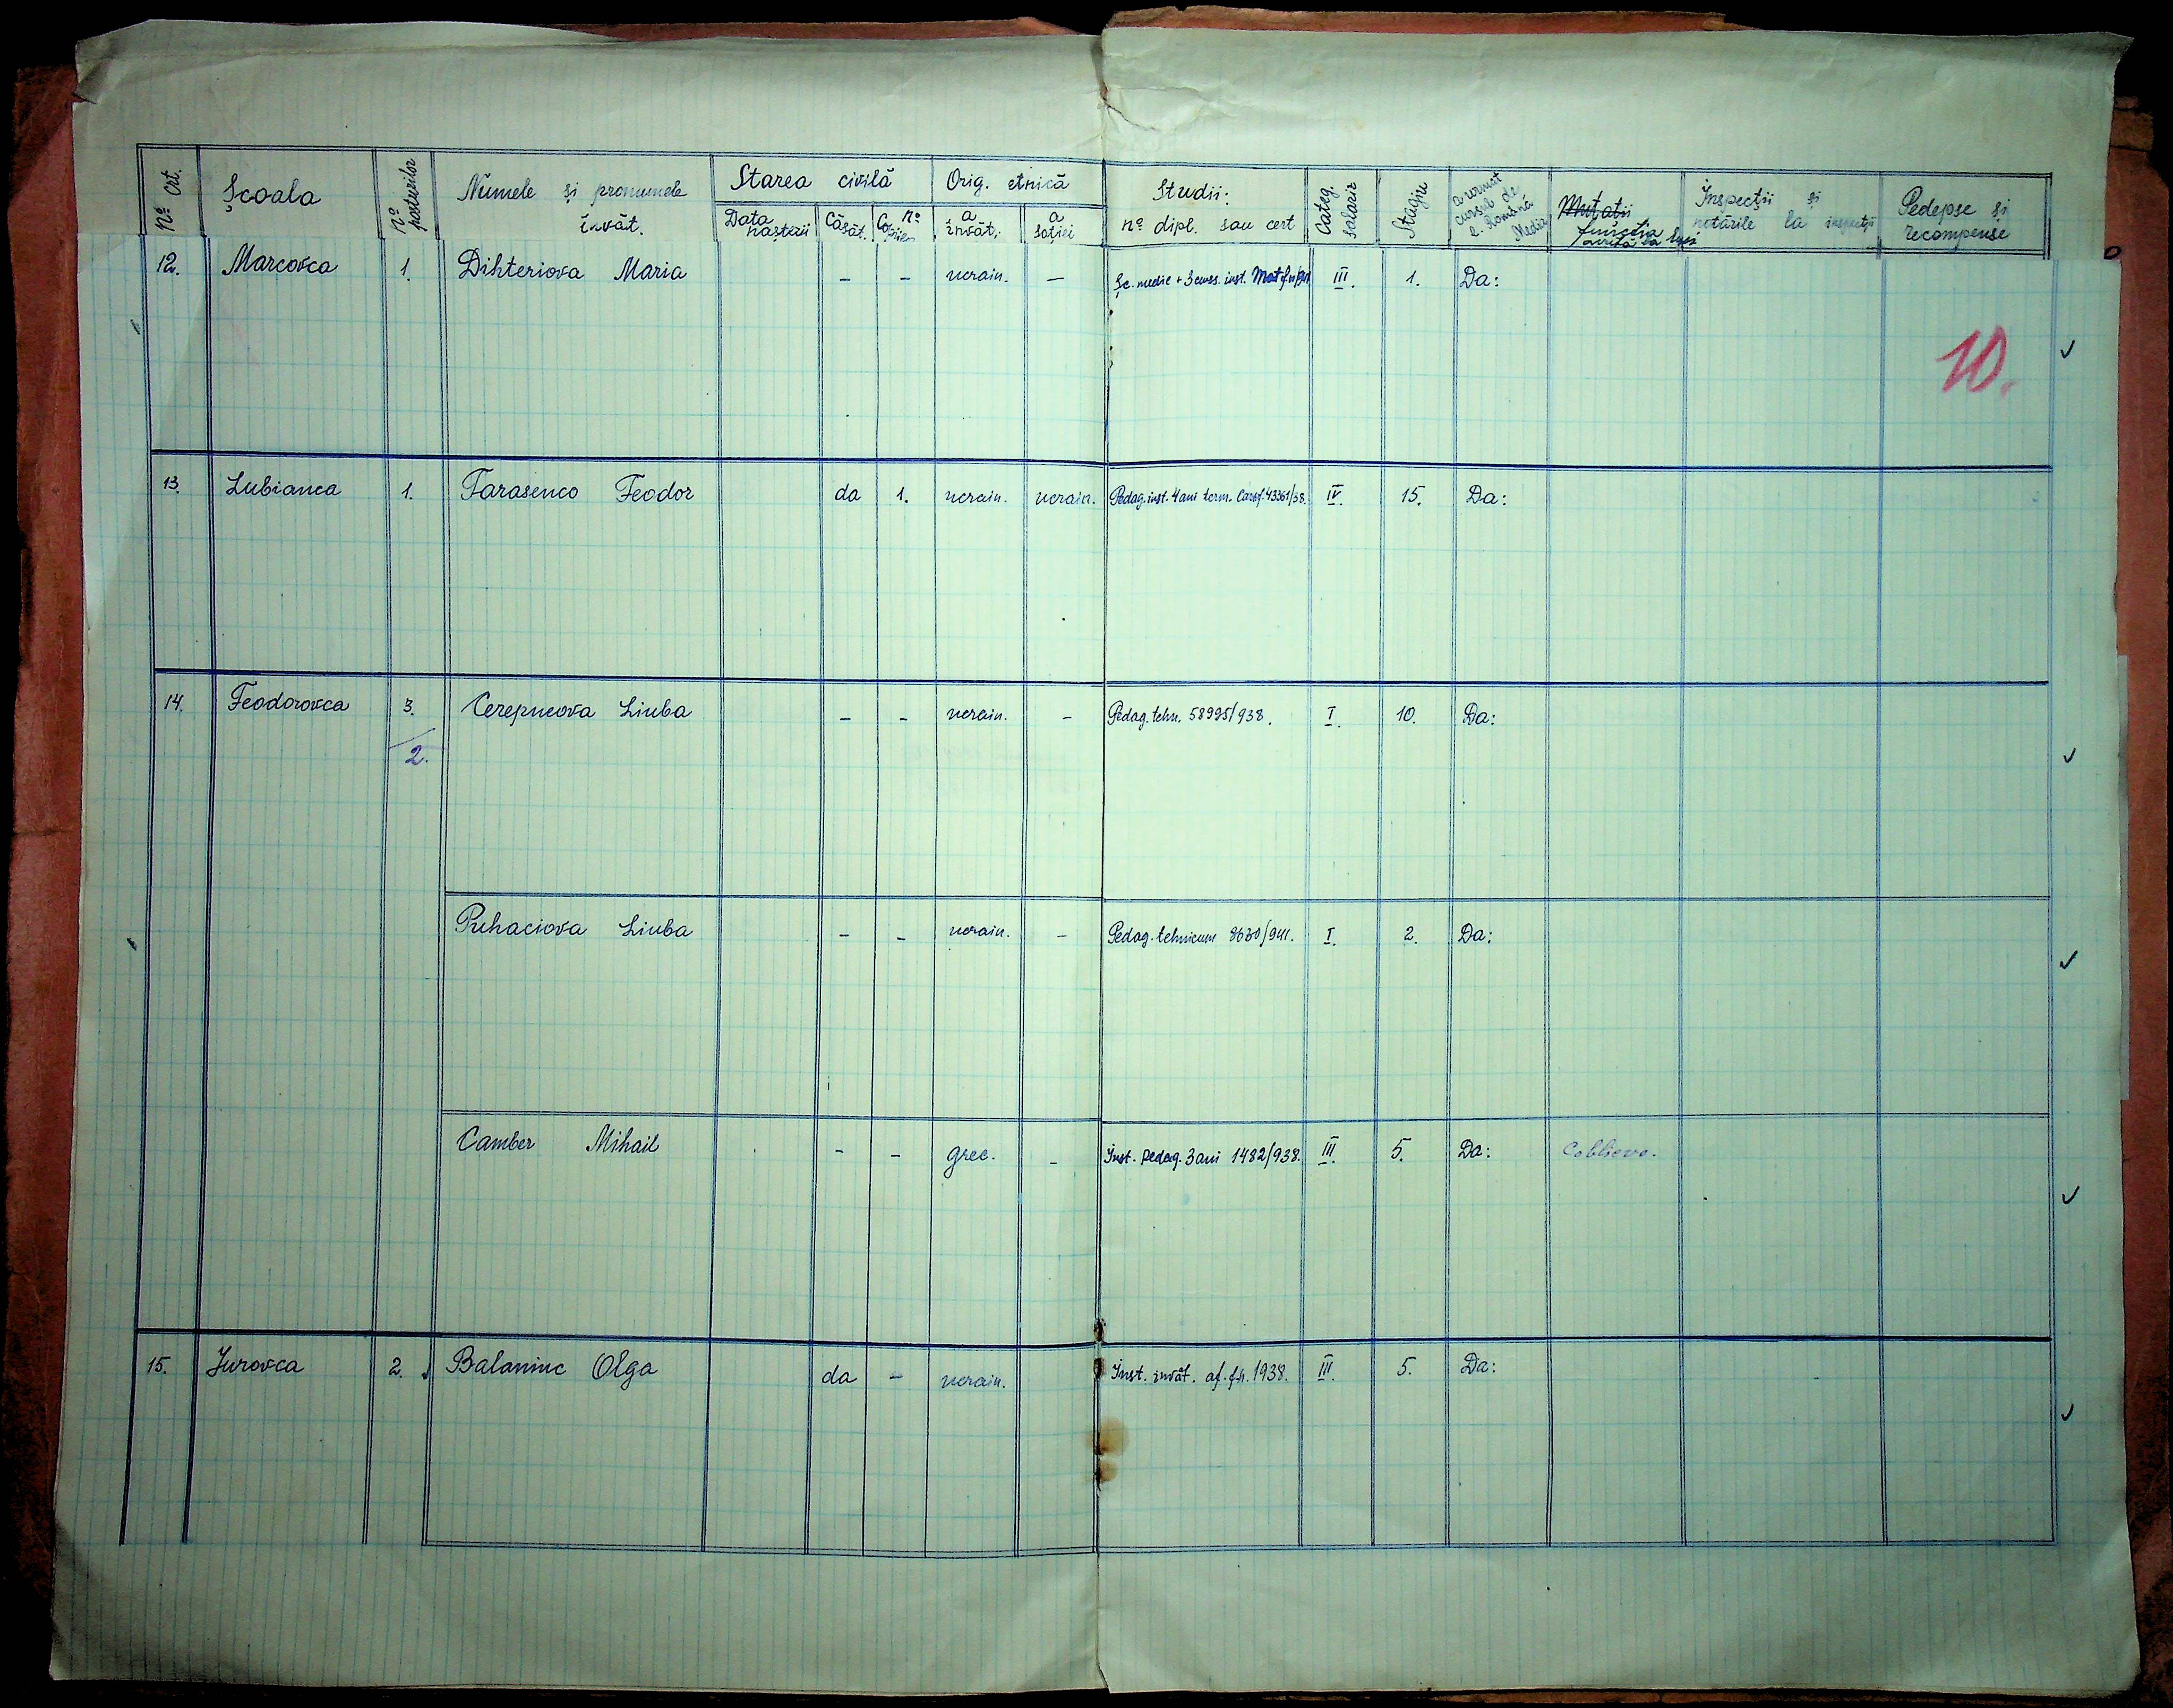 Nº Crt. Școala Nº posturilor Numele și pronumele învăt. Starea civilă Orig. etnică Studii: nº dipl. sau cert Categ. salariz Stagiu a urmat cursul de l. Română Media Mutații Inspecții și notările la inspecții Pedepse și recompense
Data nașterii Căsăt. Nº Copiilor a învăt. a soției
12. Marcovca 1. Dihteriova Maria – – ucrain. – Șc. medie + 3 curs. inst. III. 1. Da:
10.
13. Lubianca 1. Tarasenco Feodor da 1. ucrain. ucrain. Pedag. inst. 4 ani term. 43361/38. IV. 15. Da:
14. Feodorovca 3. Cerepucova Liuba – – ucrain. – Pedag. tehn. 58995/938. I. 10. Da:
2.
Puhaciova Liuba – – ucrain. – Pedag. tehnicum 8630/941. I. 2. Da:
Camber Mihail – – grec. – Inst. pedag. 3 ani 1482/938. III. 5. Da: Coblievo.
15. Jurovca 2. Balaniuc Olga da – ucrain. Inst. învăt. af. fr. 1938. III. 5. Da: